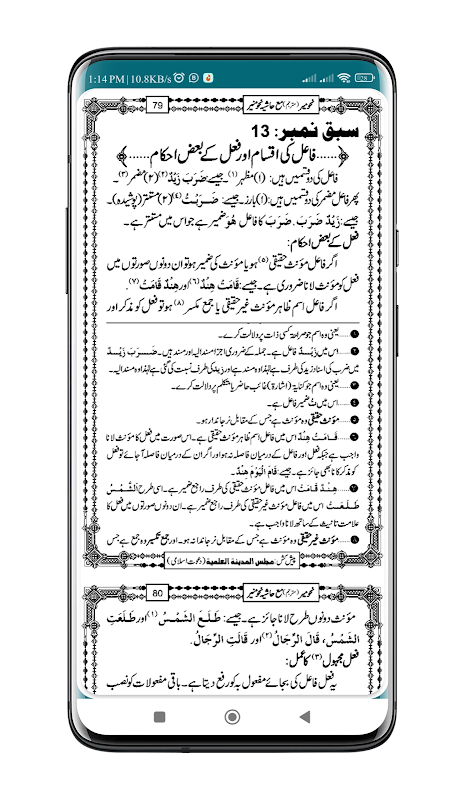 1:14 PM | 10.8KB/s
79
نحومیر (مترجم) مع حاشیہ نحومنیر
سبق نمبر: 13
﴿......فاعل کی اقسام اور فعل کے بعض احکام......﴾
فاعل کی دو قسمیں ہیں: (۱) مظہر(۱)۔ جیسے: ضَرَبَ زَیْدٌ(۲) (۲) مضمر(۳)۔
پھر فاعل مضمر کی دو قسمیں ہیں: (۱) بارز۔ جیسے: ضَرَبْتُ(۴) (۲) مستتر (پوشیدہ)۔
جیسے: زَیْدٌ ضَرَبَ۔ ضَرَبَ کا فاعل ھُوَ ضمیر ہے جو اس میں مستتر ہے۔
فعل کے بعض احکام:
اگر فاعل مؤنث حقیقی(۵) ہو یا مؤنث کی ضمیر ہو تو ان دونوں صورتوں میں
فعل کو مؤنث لانا ضروری ہے۔ جیسے: قَامَتْ ھِنْدٌ(۶) اور ھِنْدٌ قَامَتْ(۷)۔
اگر فاعل اسم ظاہر مؤنث غیر حقیقی یا جمع مکسر(۸) ہو تو فعل کو مذکر اور
۱.....یعنی وہ اسم جو صراحۃً کسی ذات پر دلالت کرے۔
۲.....اس میں زَیْدٌ فاعل ہے۔ جملہ کے ضروری اجزا مسند الیہ اور مسند ہیں۔ ضَرَبَ زَیْدٌ
میں ضرب کی اسناد زید کی طرف ہے لہٰذا وہ مسند ہے اور زید کی طرف نسبت کی گئی ہے لہٰذا وہ مسند الیہ۔
۳.....یعنی وہ اسم جو کنایۃً (اشارۃً) غائب حاضر یا متکلم پر دلالت کرے۔
۴.....اس میں تُ ضمیر فاعل ہے۔
۵.....مؤنث حقیقی وہ مؤنث ہے جس کے مقابل نر جاندار ہو۔
۶.....قَامَتْ ھِنْدٌ اس میں فاعل اسم ظاہر مؤنث حقیقی ہے۔ اس صورت میں فعل کا مؤنث لانا
واجب ہے جبکہ فعل اور فاعل کے درمیان فاصلہ نہ ہو اور اگر ان کے درمیان فاصلہ آجائے تو فعل
کو مذکر لانا بھی جائز ہے۔ جیسے: قَامَ الْیَوْمَ ھِنْدٌ۔
۷.....ھِنْدٌ قَامَتْ اس میں فاعل مؤنث حقیقی کی طرف راجع ضمیر ہے۔ اسی طرح اَلشَّمْسُ
طَلَعَتْ اس میں فاعل مؤنث غیر حقیقی کی طرف راجع ضمیر ہے۔ ان دونوں صورتوں میں فعل کا
علامت تانیث کے ساتھ لانا واجب ہے۔
۸.....مؤنث غیر حقیقی وہ مؤنث ہے جس کے مقابل نر جاندار نہ ہو۔ اور جمع تکسیر وہ جمع ہے جس
پیش کش: مجلس المدینۃ العلمیۃ (دعوت اسلامی)
80
نحومیر (مترجم) مع حاشیہ نحومنیر
مؤنث دونوں طرح لانا جائز ہے۔ جیسے: طَلَعَ الشَّمْسُ(۱) اور طَلَعَتِ
الشَّمْسُ، قَالَ الرِّجَالُ(۲) اور قَالَتِ الرِّجَالُ۔
فعل مجہول(۳) کا عمل:
یہ فعل فاعل کی بجائے مفعول بہ کو رفع دیتا ہے۔ باقی مفعولات کو نصب